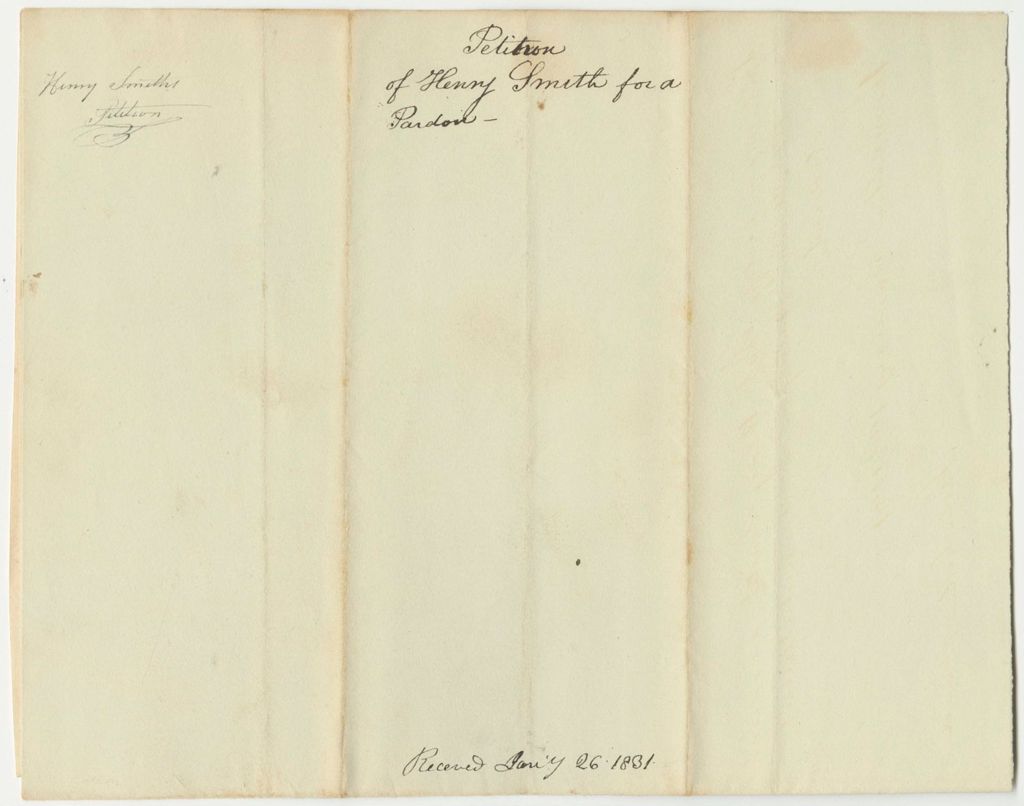 Henry Smiths
Petition
Petition
of Henry Smith for a
Pardon -
Received Jan'y 26. 1831.